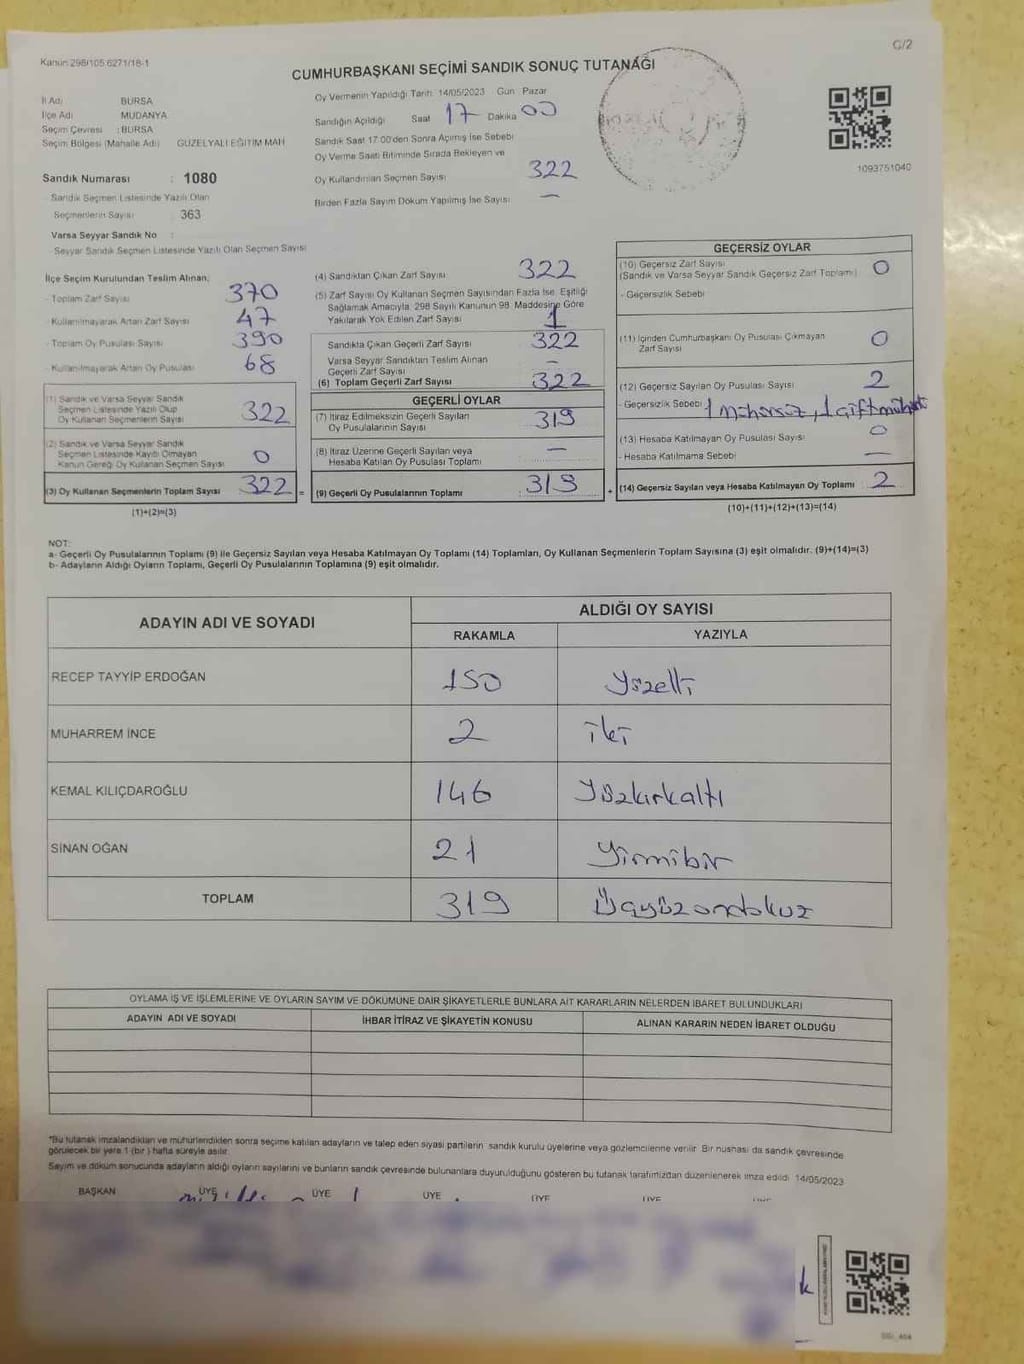 C/2
Kanun 298/105.6271/18-1
CUMHURBAŞKANI SEÇİMİ SANDIK SONUÇ TUTANAĞI
İl Adı BURSA
İlçe Adı MUDANYA
Seçim Çevresi : BURSA
Seçim Bölgesi (Mahalle Adı) GÜZELYALI EĞİTİM MAH
Sandık Numarası : 1080
Sandık Seçmen Listesinde Yazılı Olan
Seçmenlerin Sayısı 363
Varsa Seyyar Sandık No :
Seyyar Sandık Seçmen Listesinde Yazılı Olan Seçmen Sayısı
Oy Vermenin Yapıldığı Tarih 14/05/2023 Gün Pazar
Sandığın Açıldığı Saat 17 Dakika 00
Sandık Saat 17:00'den Sonra Açılmış İse Sebebi
Oy Verme Saati Bitiminde Sırada Bekleyen ve
Oy Kullandırılan Seçmen Sayısı 322
Birden Fazla Sayım Döküm Yapılmış İse Sayısı —
1093751040
İlçe Seçim Kurulundan Teslim Alınan;
- Toplam Zarf Sayısı 370
- Kullanılmayarak Artan Zarf Sayısı 47
- Toplam Oy Pusulası Sayısı 390
- Kullanılmayarak Artan Oy Pusulası 68
(1) Sandık ve Varsa Seyyar Sandık
Seçmen Listesinde Yazılı Olup
Oy Kullanan Seçmenlerin Sayısı 322
(2) Sandık ve Varsa Seyyar Sandık
Seçmen Listesinde Kayıtlı Olmayan
Kanun Gereği Oy Kullanan Seçmen Sayısı 0
(3) Oy Kullanan Seçmenlerin Toplam Sayısı 322 =
(1)+(2)=(3)
(4) Sandıktan Çıkan Zarf Sayısı 322
(5) Zarf Sayısı Oy Kullanan Seçmen Sayısından Fazla İse, Eşitliği
Sağlamak Amacıyla, 298 Sayılı Kanunun 98. Maddesine Göre
Yakılarak Yok Edilen Zarf Sayısı 1
Sandıkta Çıkan Geçerli Zarf Sayısı 322
Varsa Seyyar Sandıktan Teslim Alınan
Geçerli Zarf Sayısı —
(6) Toplam Geçerli Zarf Sayısı 322
GEÇERLİ OYLAR
(7) İtiraz Edilmeksizin Geçerli Sayılan
Oy Pusulalarının Sayısı 319
(8) İtiraz Üzerine Geçerli Sayılan veya
Hesaba Katılan Oy Pusulası Toplamı —
(9) Geçerli Oy Pusulalarının Toplamı 319 +
GEÇERSİZ OYLAR
(10) Geçersiz Zarf Sayısı
(Sandık ve Varsa Seyyar Sandık Geçersiz Zarf Toplamı) 0
- Geçersizlik Sebebi
(11) İçinden Cumhurbaşkanı Oy Pusulası Çıkmayan
Zarf Sayısı 0
(12) Geçersiz Sayılan Oy Pusulası Sayısı 2
- Geçersizlik Sebebi 1 mühürsüz, 1 çift mühür
(13) Hesaba Katılmayan Oy Pusulası Sayısı 0
- Hesaba Katılmama Sebebi —
(14) Geçersiz Sayılan veya Hesaba Katılmayan Oy Toplamı 2
(10)+(11)+(12)+(13)=(14)
NOT:
a- Geçerli Oy Pusulalarının Toplamı (9) ile Geçersiz Sayılan veya Hesaba Katılmayan Oy Toplamı (14) Toplamları, Oy Kullanan Seçmenlerin Toplam Sayısına (3) eşit olmalıdır. (9)+(14)=(3)
b- Adayların Aldığı Oyların Toplamı, Geçerli Oy Pusulalarının Toplamına (9) eşit olmalıdır.
ADAYIN ADI VE SOYADI ALDIĞI OY SAYISI
RAKAMLA YAZIYLA
RECEP TAYYİP ERDOĞAN 150 Yüzelli
MUHARREM İNCE 2 iki
KEMAL KILIÇDAROĞLU 146 Yüzkırkaltı
SİNAN OĞAN 21 Yirmibir
TOPLAM 319 Üçyüzondokuz
OYLAMA İŞ VE İŞLEMLERİNE VE OYLARIN SAYIM VE DÖKÜMÜNE DAİR ŞİKAYETLERLE BUNLARA AİT KARARLARIN NELERDEN İBARET BULUNDUKLARI
ADAYIN ADI VE SOYADI İHBAR İTİRAZ VE ŞİKAYETİN KONUSU ALINAN KARARIN NEDEN İBARET OLDUĞU
"Bu tutanak imzalandıktan ve mühürlendikten sonra seçime katılan adayların ve talep eden siyasi partilerin sandık kurulu üyelerine veya gözlemcilerine verilir. Bir nüshası da sandık çevresinde
görülecek bir yere 1 (bir ) hafta süreyle asılır.
Sayım ve döküm sonucunda adayların aldığı oyların sayılarını ve bunların sandık çevresinde bulunanlara duyurulduğunu gösteren bu tutanak tarafımızdan düzenlenerek imza edildi. 14/05/2023
BAŞKAN ÜYE ÜYE ÜYE ÜYE ÜYE